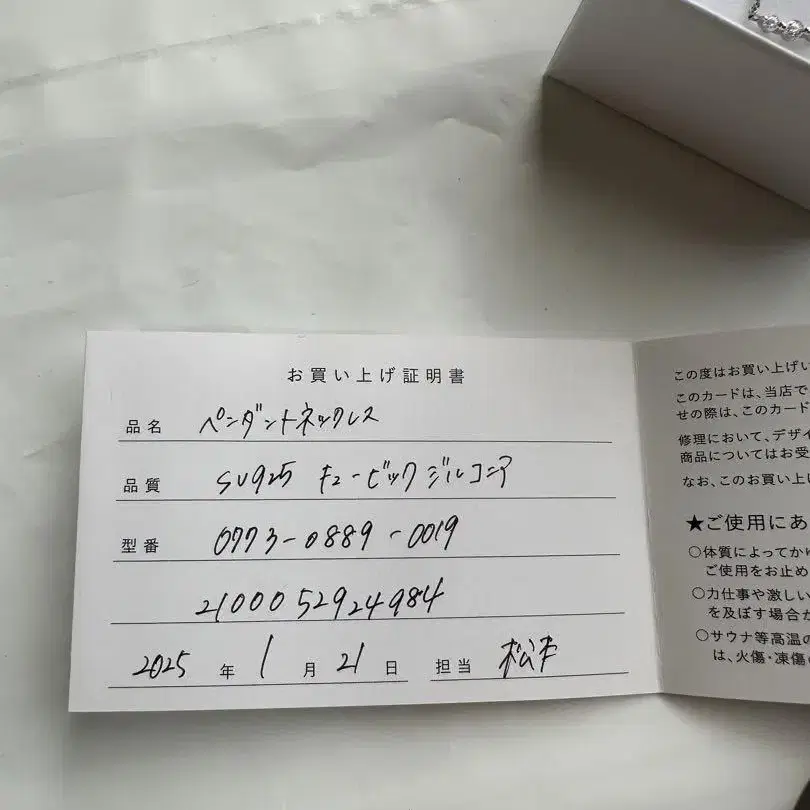 お買い上げ証明書
品名 ペンダントネックレス
品質 SV925 キュービックジルコニア
型番 0773-0889-0019
2100052924984
2025 年 1 月 21 日 担当 松本
この度はお買い上げい
このカードは、当店で
せの際は、このカード
修理において、デザイ
商品についてはお受
なお、このお買い上げ
★ご使用にあ
○体質によってかゆ
ご使用をお止め
○力仕事や激しい
を及ぼす場合が
○サウナ等高温の
は、火傷・凍傷の